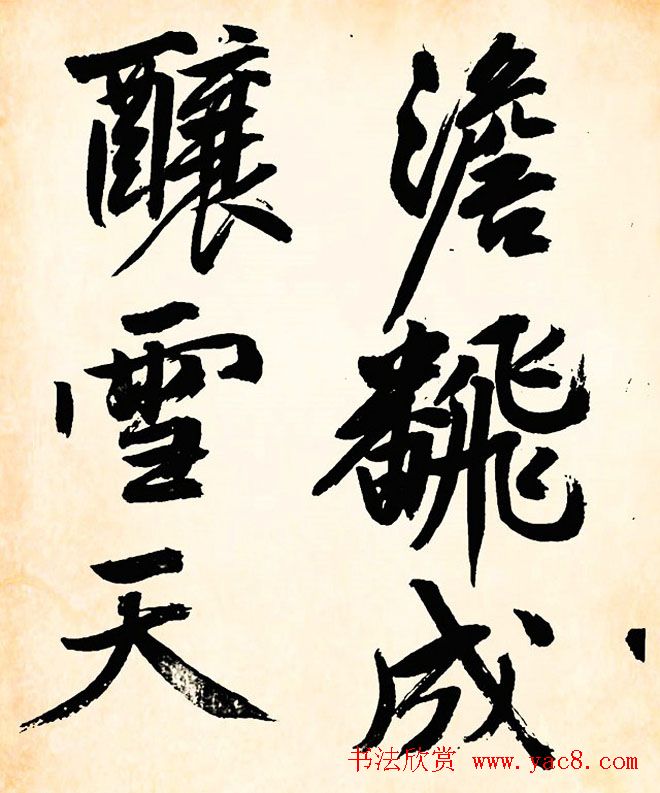 澹飜成
釀雪天
书法欣赏 www.yac8.com